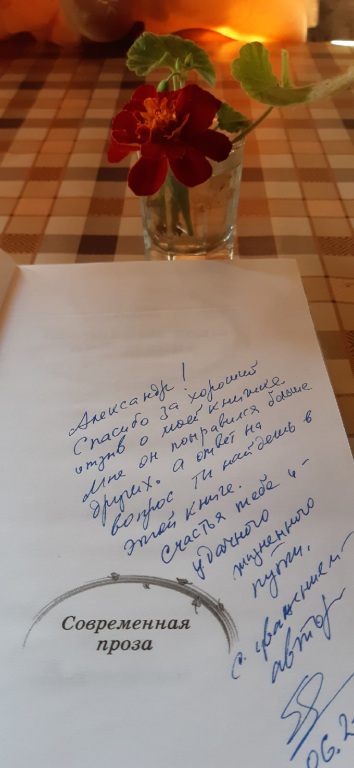 Александр!
Спасибо за хороший
отзыв о моей книжке
Мне он понравился больше
других. А ответ на
вопрос ты найдешь в
этой книге.
Счастья тебе и
удачного
жизненного
пути.
с уважением
автор
06.2
Современная
проза